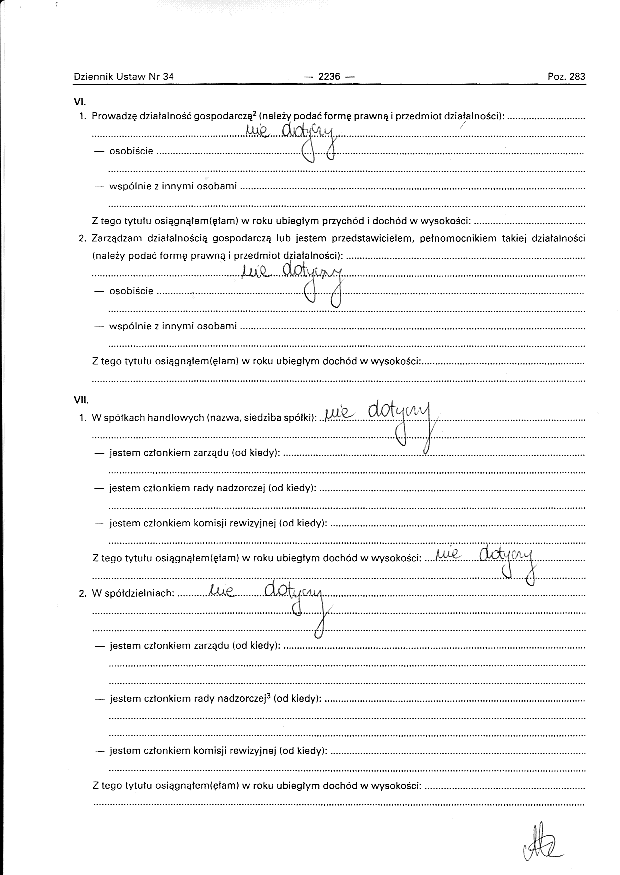 Dziennik Ustaw Nr 34 — 2236 — Poz. 283
VI.
1. Prowadzę działalność gospodarczą² (należy podać formę prawną i przedmiot działalności):
nie dotyczy
— osobiście
— wspólnie z innymi osobami
Z tego tytułu osiągnąłem(ęłam) w roku ubiegłym przychód i dochód w wysokości:
2. Zarządzam działalnością gospodarczą lub jestem przedstawicielem, pełnomocnikiem takiej działalności
(należy podać formę prawną i przedmiot działalności):
nie dotyczy
— osobiście
— wspólnie z innymi osobami
Z tego tytułu osiągnąłem(ęłam) w roku ubiegłym dochód w wysokości:
VII.
1. W spółkach handlowych (nazwa, siedziba spółki): nie dotyczy
— jestem członkiem zarządu (od kiedy):
— jestem członkiem rady nadzorczej (od kiedy):
— jestem członkiem komisji rewizyjnej (od kiedy):
Z tego tytułu osiągnąłem(ęłam) w roku ubiegłym dochód w wysokości: nie dotyczy
2. W spółdzielniach: nie dotyczy
— jestem członkiem zarządu (od kiedy):
— jestem członkiem rady nadzorczej³ (od kiedy):
— jestem członkiem komisji rewizyjnej (od kiedy):
Z tego tytułu osiągnąłem(ęłam) w roku ubiegłym dochód w wysokości: